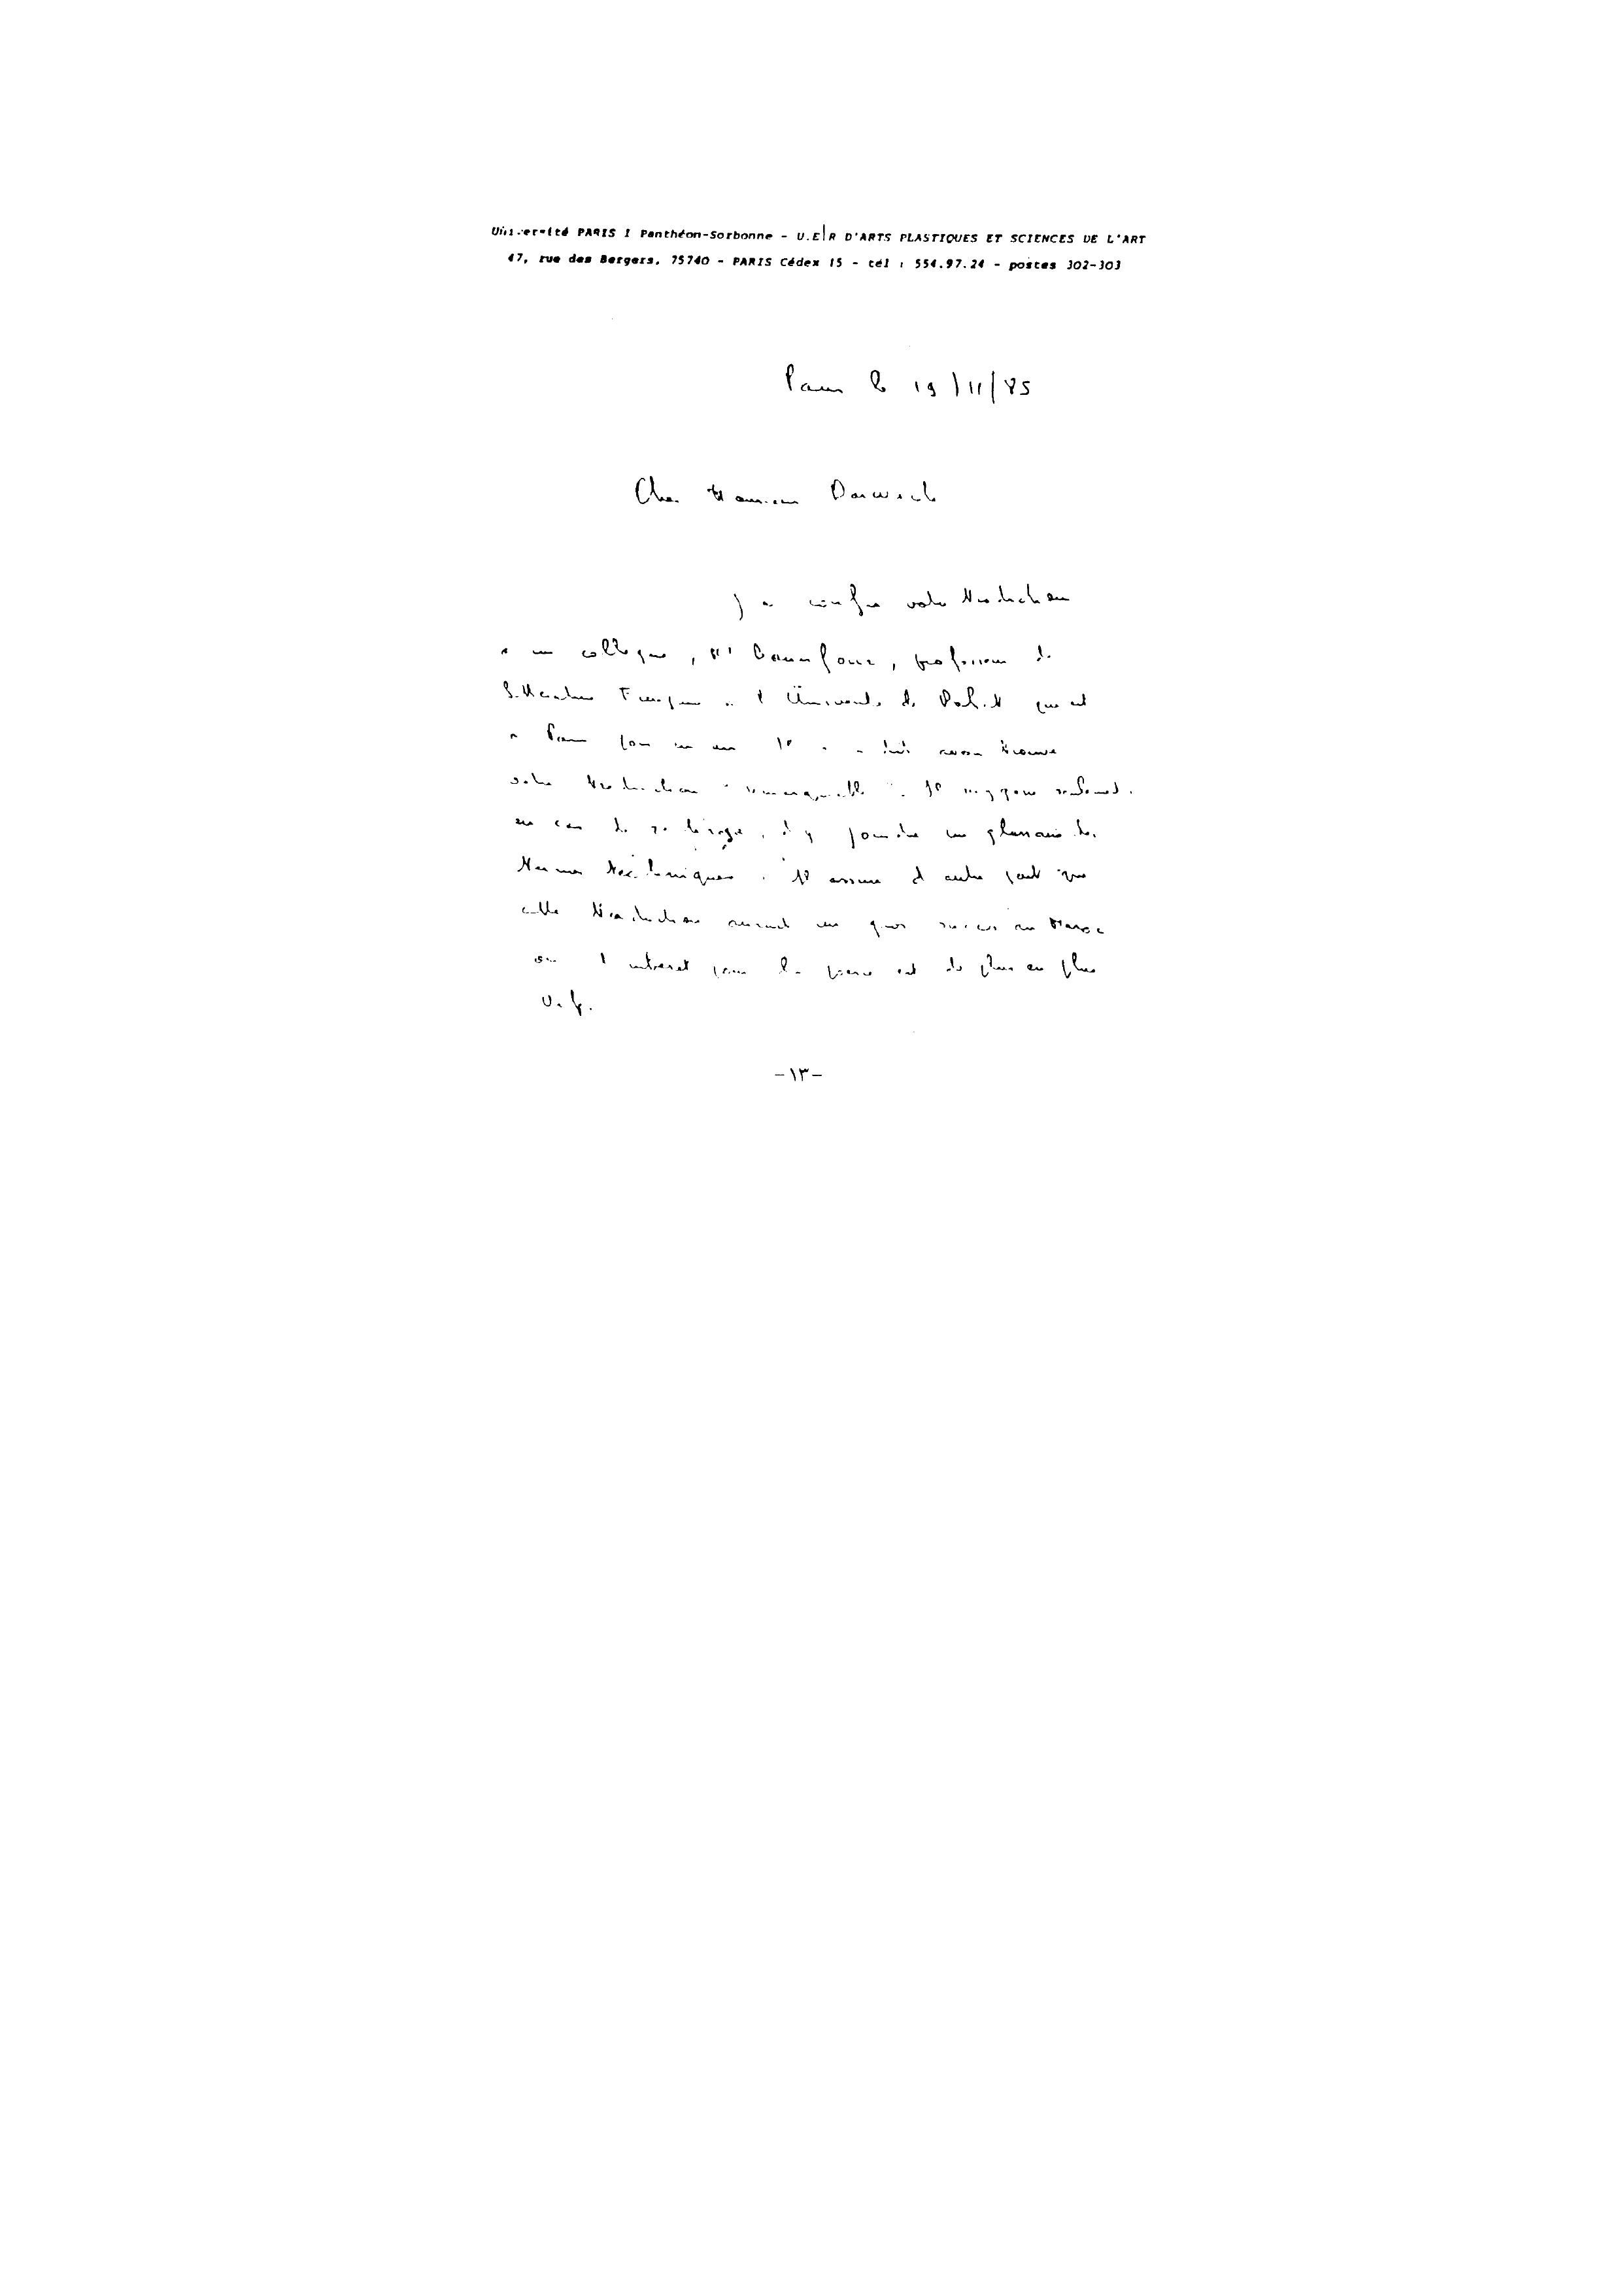 Université PARIS I Panthéon-Sorbonne - U.E R D'ARTS PLASTIQUES ET SCIENCES DE L'ART
47, rue des Bergers, 75740 - PARIS Cédex 15 - tél : 554.97.24 - postes 302-303
Paris le 19/11/85
Cher Monsieur Darwich
J'ai confié votre traduction
à un collègue, Mr, professeur de
littérature Française à l'Université de Rabat qui est
à Paris pour un an. Il a dit avoir trouvé
votre traduction "remarquable". Il suggère seulement,
en cas de retirage, d'y joindre un glossaire des
termes techniques. Il assure d'autre part que
cette traduction aurait un gros succès au Maroc
où l'intérêt pour la est de plus en plus
vif.
-١٣-